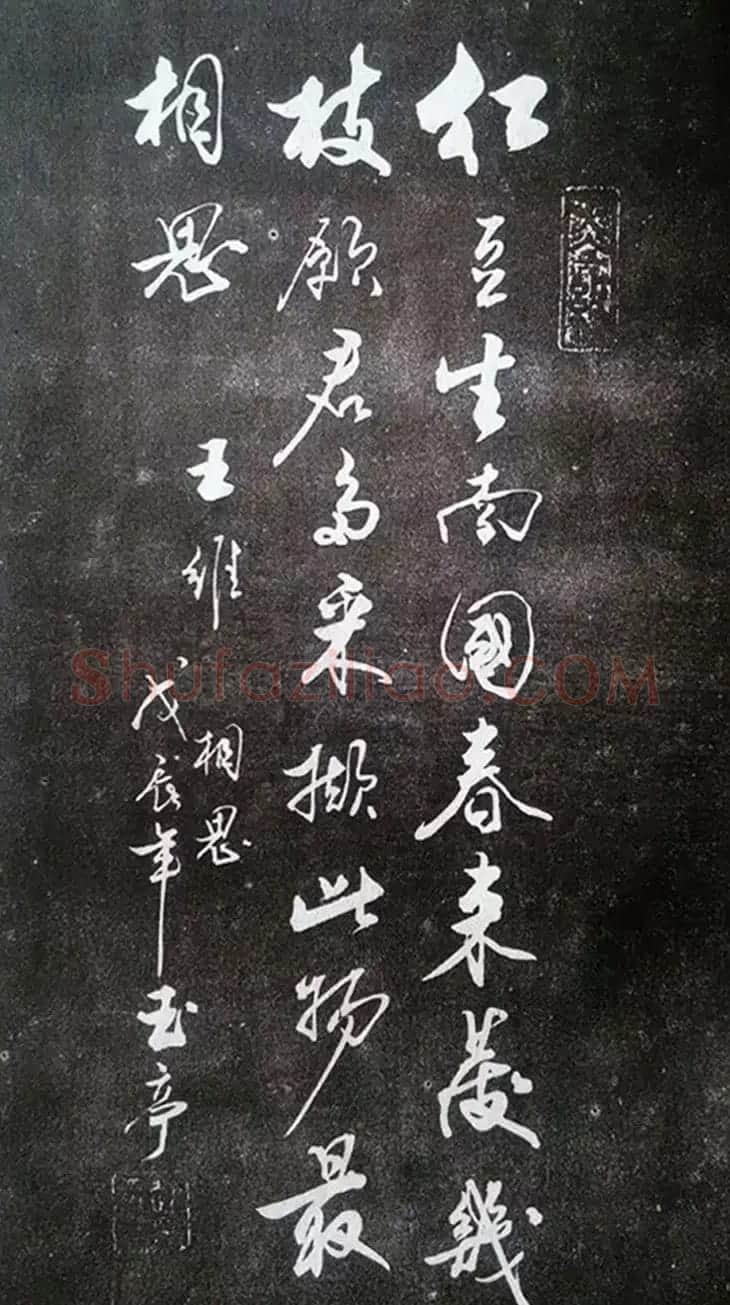 红豆生南國春来發幾
枝願君多采擷此物最
相思
王維
相思
戊辰年玉亭
Shufaziliao.COM